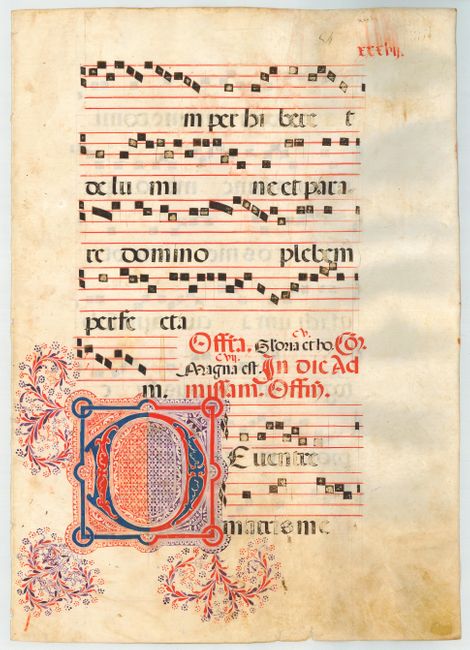 xxxviij.
m per hi bere t
de lu mi ne et para
re domino plebem
perfe cta
Offta. cv. Gloria et ho. Cōi.
cvij. Magna est. In die Ad
m. missam. Offm̄.
D E uentre
matris me